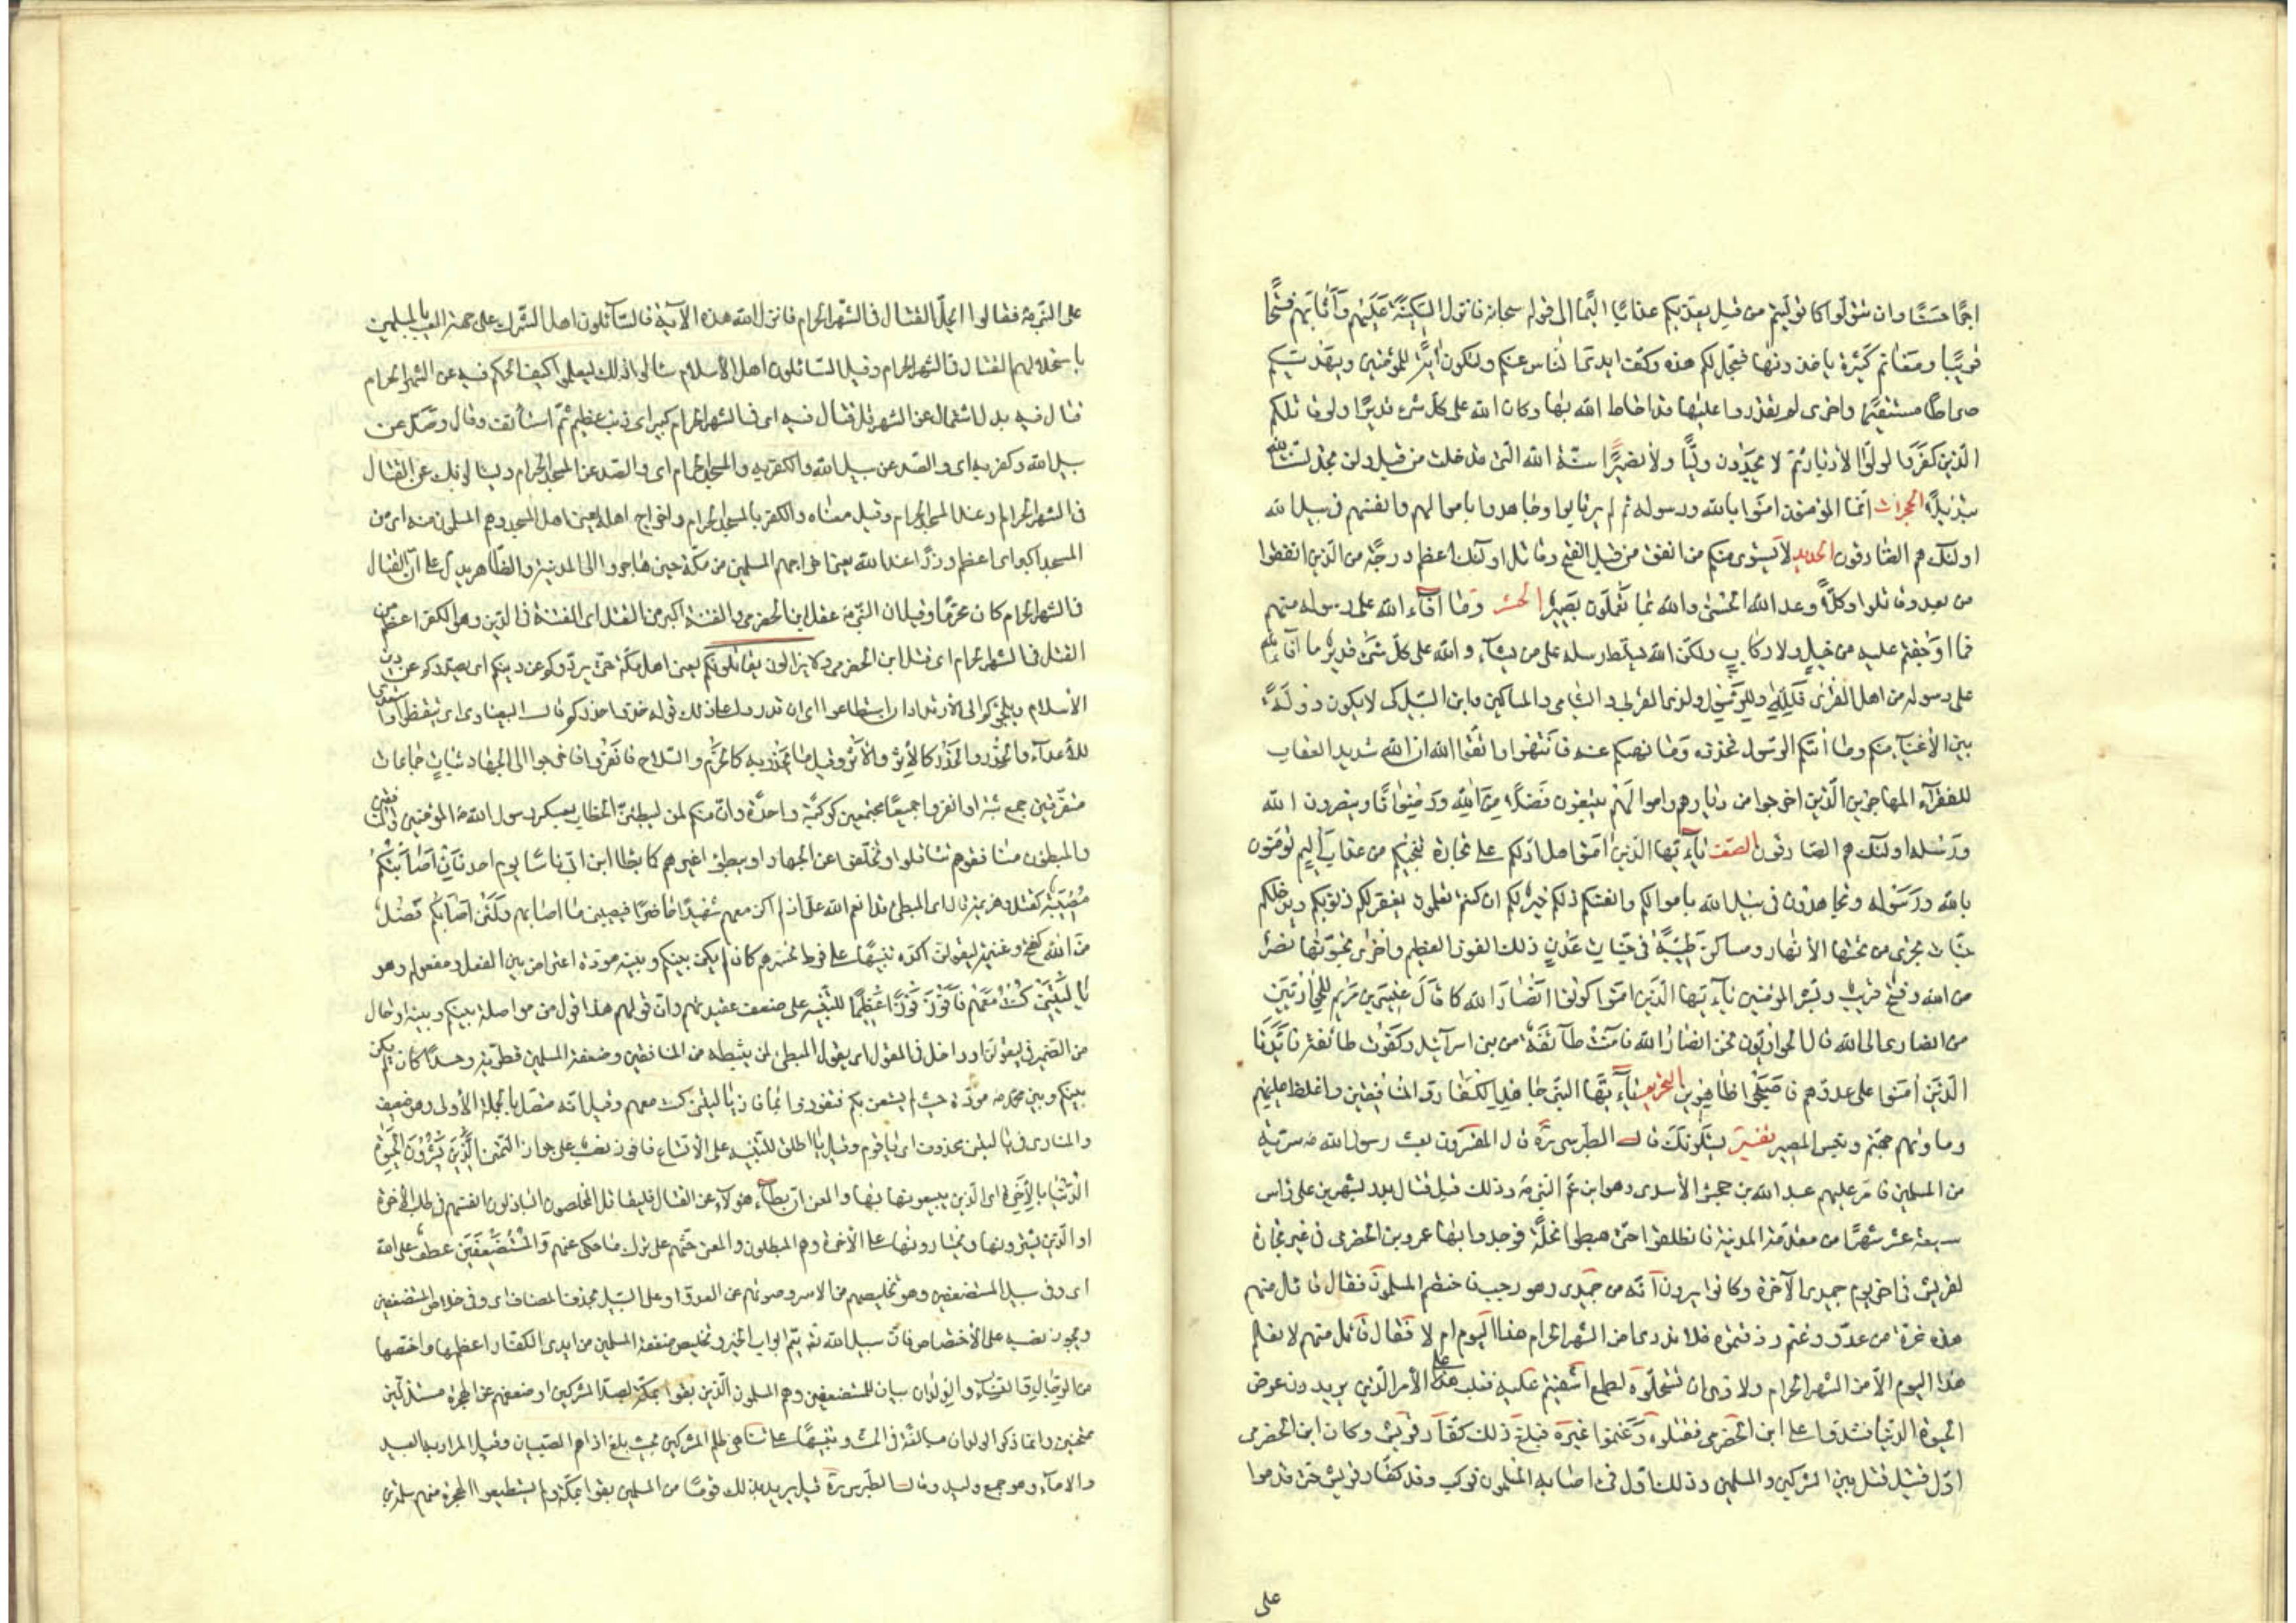 اجرًا حسنًا وان تتولّوا كما تولّيتم من قبل يعذّبكم عذابًا اليمًا الى قوله سبحانه فانزل السّكينة عليهم وأثابهم فتحًا
قريبًا ومغانم كثيرة ياخذونها فعجّل لكم هذه وكفّ ايدى النّاس عنكم ولتكون اية للمؤمنين ويهديكم
صراطًا مستقيمًا واخرى لم يقدروا عليها قد احاط الله بها وكان الله على كلّ شىء قديرًا ولو قاتلكم
الّذين كفروا لولّوا الأدبار ثمّ لا يجدون وليًّا ولا نصيرًا سنّة الله الّتى قد خلت من قبل ولن تجد لسنّة الله
تبديلًا الحجرات انّما المؤمنون الذين امنوا بالله ورسوله ثم لم يرتابوا وجاهدوا باموالهم وانفسهم فى سبيل الله
اولئك هم الصّادقون الحديد لا يستوى منكم من انفق من قبل الفتح وقاتل اولئك اعظم درجة من الّذين انفقوا
من بعد وقاتلوا وكلًّا وعد الله الحسنى والله بما تعملون بصير الحشر وما افآء الله على رسوله منهم
فما اوجفتم عليه من خيل ولا ركاب ولكنّ الله يسلّط رسله على من يشآء والله على كلّ شىء قدير ما افآء الله
على رسوله من اهل القرى فللّه وللرّسول ولذى القربى واليتامى والمساكين وابن السّبيل كى لا يكون دولة
بين الأغنيآء منكم وما اتيكم الرّسول فخذوه وما نهيكم عنه فانتهوا واتّقوا الله ان الله شديد العقاب
للفقرآء المهاجرين الّذين اخرجوا من ديارهم واموالهم يبتغون فضلًا من الله ورضوانًا وينصرون الله
ورسله اولئك هم الصّادقون الصّف يآ ايّها الّذين امنوا هل ادلّكم على تجارة تنجيكم من عذاب اليم تؤمنون
بالله ورسوله وتجاهدون فى سبيل الله باموالكم وانفسكم ذلكم خير لكم ان كنتم تعلمون يغفر لكم ذنوبكم ويدخلكم
جنّات تجرى من تحتها الأنهار ومساكن طيّبة فى جنّات عدن ذلك الفوز العظيم واخرى تحبّونها نصر
من الله وفتح قريب وبشّر المؤمنين يآ ايّها الّذين امنوا كونوا انصار الله كما قال عيسى بن مريم للحواريّين
من انصارى الى الله قال الحواريّون نحن انصار الله فآمنت طآئفة من بنى اسرآئيل وكفرت طائفة فايّدنا
الّذين امنوا على عدوّهم فاصبحوا ظاهرين التحريم يآ ايّها النبىّ جاهد الكفّار والمنافقين واغلظ عليهم
وماويهم جهنّم وبئس المصير تفسير يسئلونك قال الطّبرسى ره قال المفسّرون بعث رسول الله ص سريّة
من المسلمين فامّر عليهم عبد الله بن جحش الأسدى وهو ابن عمّة النّبى ص وذلك قبل قتال بدر بشهرين على راس
سبعة عشر شهرًا من مقدمه المدينة فانطلقوا حتّى هبطوا نخلة فوجدوا بها عمرو بن الحضرمى فى عير تجارة
لقريش فى اخر يوم جمدى الآخرة وكانوا يرون انّه من جمدى وهو رجب فاختصم المسلمون فقال قائل منهم
هذه غرّة من عدوّ وغنم رزقتموه فلا ندرى امن الشهر الحرام هذا اليوم ام لا فقال قائل منهم لا نعلم
هذا اليوم الّا من الشهر الحرام ولا نرى ان تستحلّوه لطمع اشفيتم عليه فغلب على الأمر الّذين يريدون عرض
الحيوة الدّنيا فشدّوا على ابن الحضرمى فقتلوه وغنموا عيره فبلغ ذلك كفّار قريش وكان ابن الحضرمى
اوّل قتيل قتل بين المشركين والمسلمين وذلك اوّل فىء اصابه المسلمون فركب وفد كفّار قريش حتّى قدموا
على
على النّبى ص فقالوا ايحلّ القتال فى الشهر الحرام فانزل الله هذه الآية فالسّآئلون اهل الشّرك على جهة العيب للمسلمين
باستحلالهم القتال فى الشهر الحرام وقيل السّائلون اهل الأسلام سالوا ذلك ليعلموا كيف الحكم فيه عن الشهر الحرام
قتال فيه بدل اشتمال عن الشهر قل قتال فيه اى فى الشهر الحرام كبير اى ذنب عظيم ثمّ استأنف وقال وصدّ عن
سبيل الله وكفر به اى والصّد عن سبيل الله والكفر به والمسجد الحرام اى والصّد عن المسجد الحرام ويسالونك عن القتال
فى الشهر الحرام وعند المسجد الحرام وقيل معناه والكفر بالمسجد الحرام واخراج اهله يعنى اهل المسجد وهم المسلمون منه اى من
المسجد اكبر اى اعظم وزرًا عند الله يعنى اخراجهم المسلمين من مكّة حين هاجروا الى المدينة والظّاهر يدل على انّ القتال
فى الشهر الحرام كان محرّمًا وقيل ان النّبى ص عقل ابن الحضرمى والفتنة اكبر من القتل اى الفتنة فى الدّين وهو الكفر اعظم من
القتل فى الشهر الحرام اى قتل ابن الحضرمى ولا يزالون يقاتلونكم يعنى اهل مكّة حتّى يردّوكم عن دينكم اى يصدّوكم عن دين
الأسلام ويلجئوكم الى الأرتداد ان استطاعوا اى ان قدروا على ذلك قوله خذوا حذركم قال البيضاوى اى تيقّظوا واستعدّوا
للأعدآء والحذر والحذر كالأثر والأثر وقيل ما يحذر به كالحزم والسّلاح فانفروا فاخرجوا الى الجهاد ثبات جماعات
متفرّقين جمع ثبة او انفروا جميعًا مجتمعين كوكبة واحدة وانّ منكم لمن ليبطئنّ الخطاب لعسكر رسول الله ص المؤمنين منهم والمنافقين
والمبطئون منافقوهم تثاقلوا وتخلّفوا عن الجهاد او يبطئوا غيرهم كما بطّا ابن ابىّ ناسًا يوم احد فان اصابتكم
مصيبة كقتل وهزيمة قال اى المبطئ قد انعم الله علىّ اذ لم اكن معهم شهيدًا حاضرًا فيصيبنى ما اصابهم ولئن اصابكم فضل
من الله كفتح وغنيمة ليقولنّ اكّده تنبيهًا على فرط تحسّرهم كان لم يكن بينكم وبينه مودّة اعتراض بين الفعل ومفعوله وهو
يا ليتنى كنت معهم فافوز فوزًا عظيمًا للتّنبيه على ضعف عقيدتهم وانّ قولهم هذا قول من لا مواصلة بينكم وبينه او حال
من الضّمير فى ليقولنّ او داخل فى المقول اى يقول المبطئ لمن يثبّطه من المنافقين وضعفة المسلمين تطرية وحسدًا كان لم يكن
بينكم وبين محمد ص مودّة حيث لم يستعن بكم فتفوزوا بما فاز يا ليتنى كنت معهم وقيل انّه متّصل بالجملة الأولى وهو ضعيف
والمنادى فى يا ليتنى محذوف اى يا قوم وقيل يا اطلق للتّنبيه على الأتّساع فافوز نصب على جواز التّمنّى الّذين يشرون الحيوة
الدّنيا بالآخرة اى الّذين يبيعونها بها والمعنى ان بطّأ هؤلآء عن القتال فليقاتل المخلصون الباذلون انفسهم فى طلب الأخرة
او الّذين يشترونها ويختارونها على الأخرة وهم المبطئون والمعنى حثّهم على ترك ما حكى عنهم والمستضعفين عطف على الله
اى وفى سبيل المستضعفين وهو تخليصهم من الاسر وصونهم عن العدوّ او على السّبيل بحذف المضاف اى وفى خلاص المستضعفين
ويجوز نصبه على الأختصاص فانّ سبيل الله تع يعمّ ابواب الخير وتخليص ضعفة المسلمين من ايدى الكفّار اعظمها واخصّها
من الرّجال والنّسآء والولدان بيان للمستضعفين وهم المسلمون الّذين بقوا بمكّة لصدّ المشركين او ضعفهم عن الهجرة مستذلّين
ممتحنين وانّما ذكر الولدان مبالغة فى الحثّ وتنبيهًا على تناهى ظلم المشركين بحيث بلغ اذاهم الصّبيان وقيل المراد به العبيد
والامآء وهو جمع وليد وقال الطّبرسى ره قيل يريد بذلك قومًا من المسلمين بقوا بمكّة ولم يستطيعوا الهجرة منهم سلمة بن